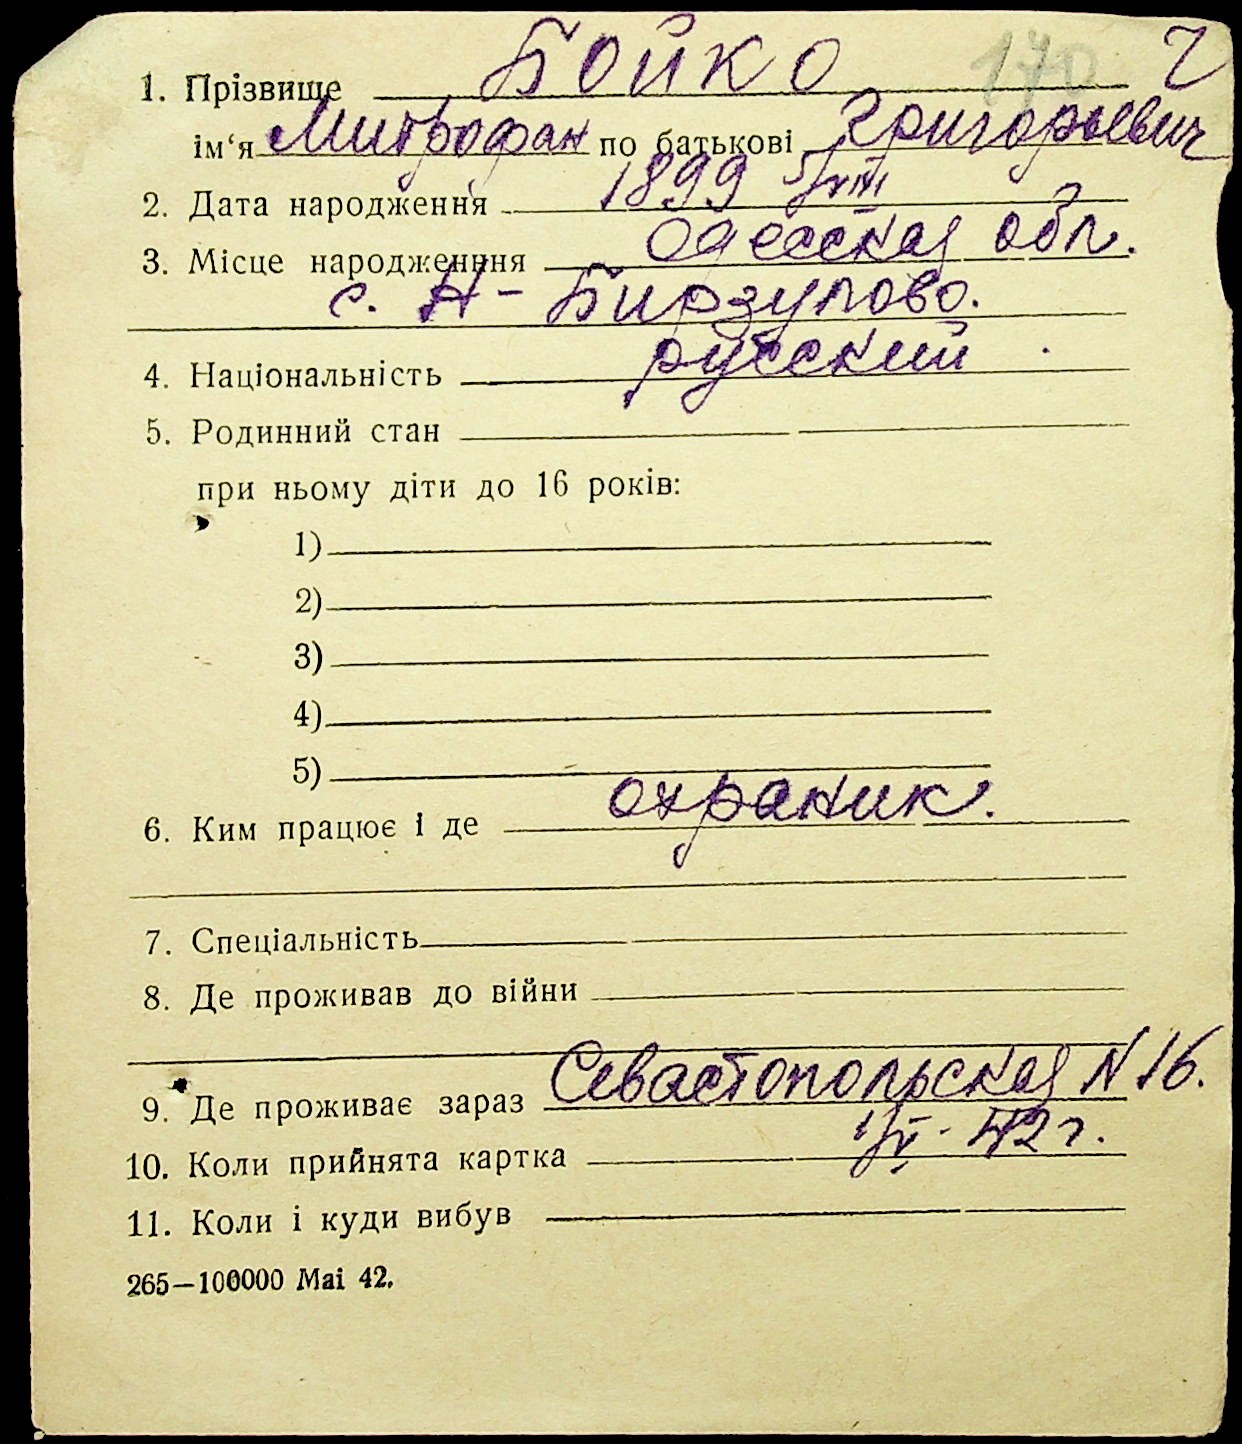 170 Ч
1. Прізвище Бойко
ім‘я Митрофан по батькові Григорьевич
2. Дата народження 1899 5/VIII
3. Місце народженння Одесская обл.
с. Н-Бирзулово.
4. Національність русский
5. Родинний стан
при ньому діти до 16 років:
1)
2)
3)
4)
5)
6. Ким працює і де охраник.
7. Спеціальність
8. Де проживав до війни
9. Де проживає зараз Севастопольская N 16.
10. Коли прийнята картка 1/V - 42 г.
11. Коли і куди вибув
265—100000 Mai 42.